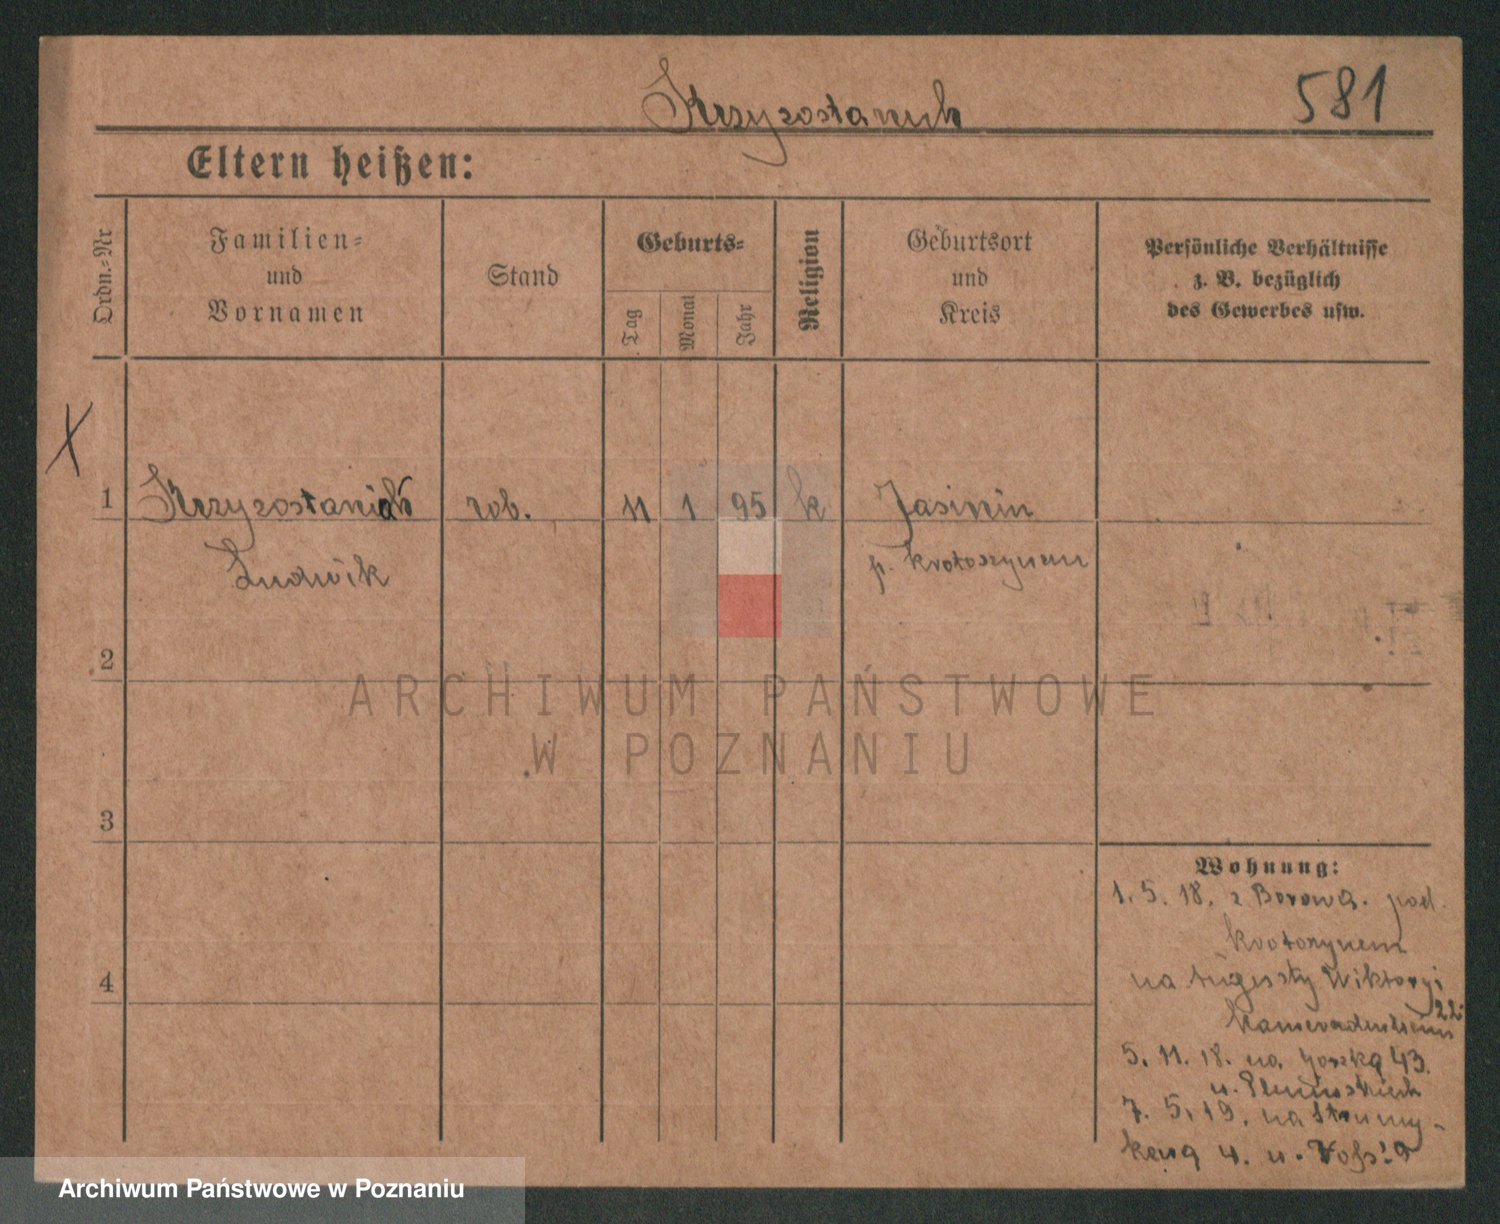 Krzyzostaniak
581
Eltern heißen:
Ordn.-Nr
Familien-
und
Vornamen
Stand
Geburts-
Tag
Monat
Jahr
Religion
Geburtsort
und
Kreis
Persönliche Verhältnisse
z. B. bezüglich
des Gewerbes usw.
X
1 Krzyzostaniak rob. 11 1 95 k Jasinin
Ludwik p. Krotoszynem
2
ARCHIWUM PAŃSTWOWE
W POZNANIU
3
4
Wohnung:
1. 5. 18. z Borowa. pod.
Krotoszynem
na Augusty Wiktoryi
22.
5. 11. 18. na 43.
u.
7. 5. 19. na Strumy-
kową 4. u.
Archiwum Państwowe w Poznaniu